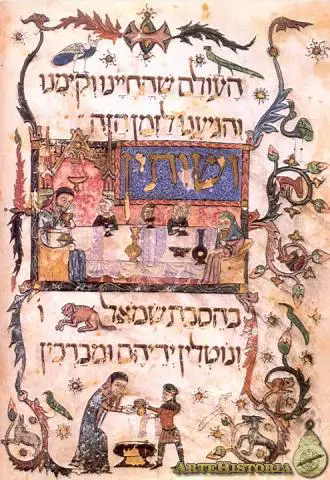 העולם שהחיינו וקימנו
והגיענו לזמן הזה
ושותין
בהסבת שמאל ו
ונוטלין ידיהם ומברכין
ArteHistoria